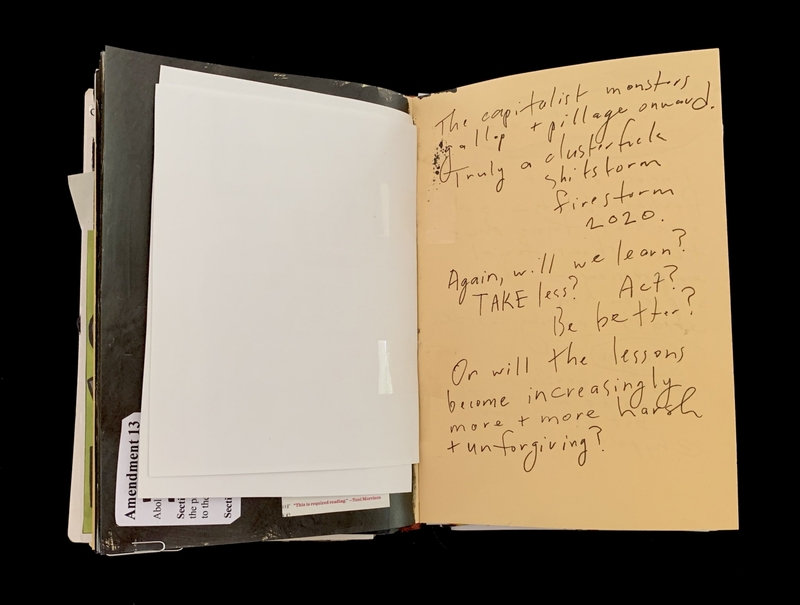 Amendment 13
Abol
Secti
the p
to the
Secti
or
"This is required reading." –Toni Morrison
The capitalist monsters
gallop + pillage onward.
Truly a clusterfuck
shitstorm
firestorm
2020.
Again, will we learn?
TAKE less? Act?
Be better?
Or will the lessons
become increasingly
more + more harsh
+ unforgiving?